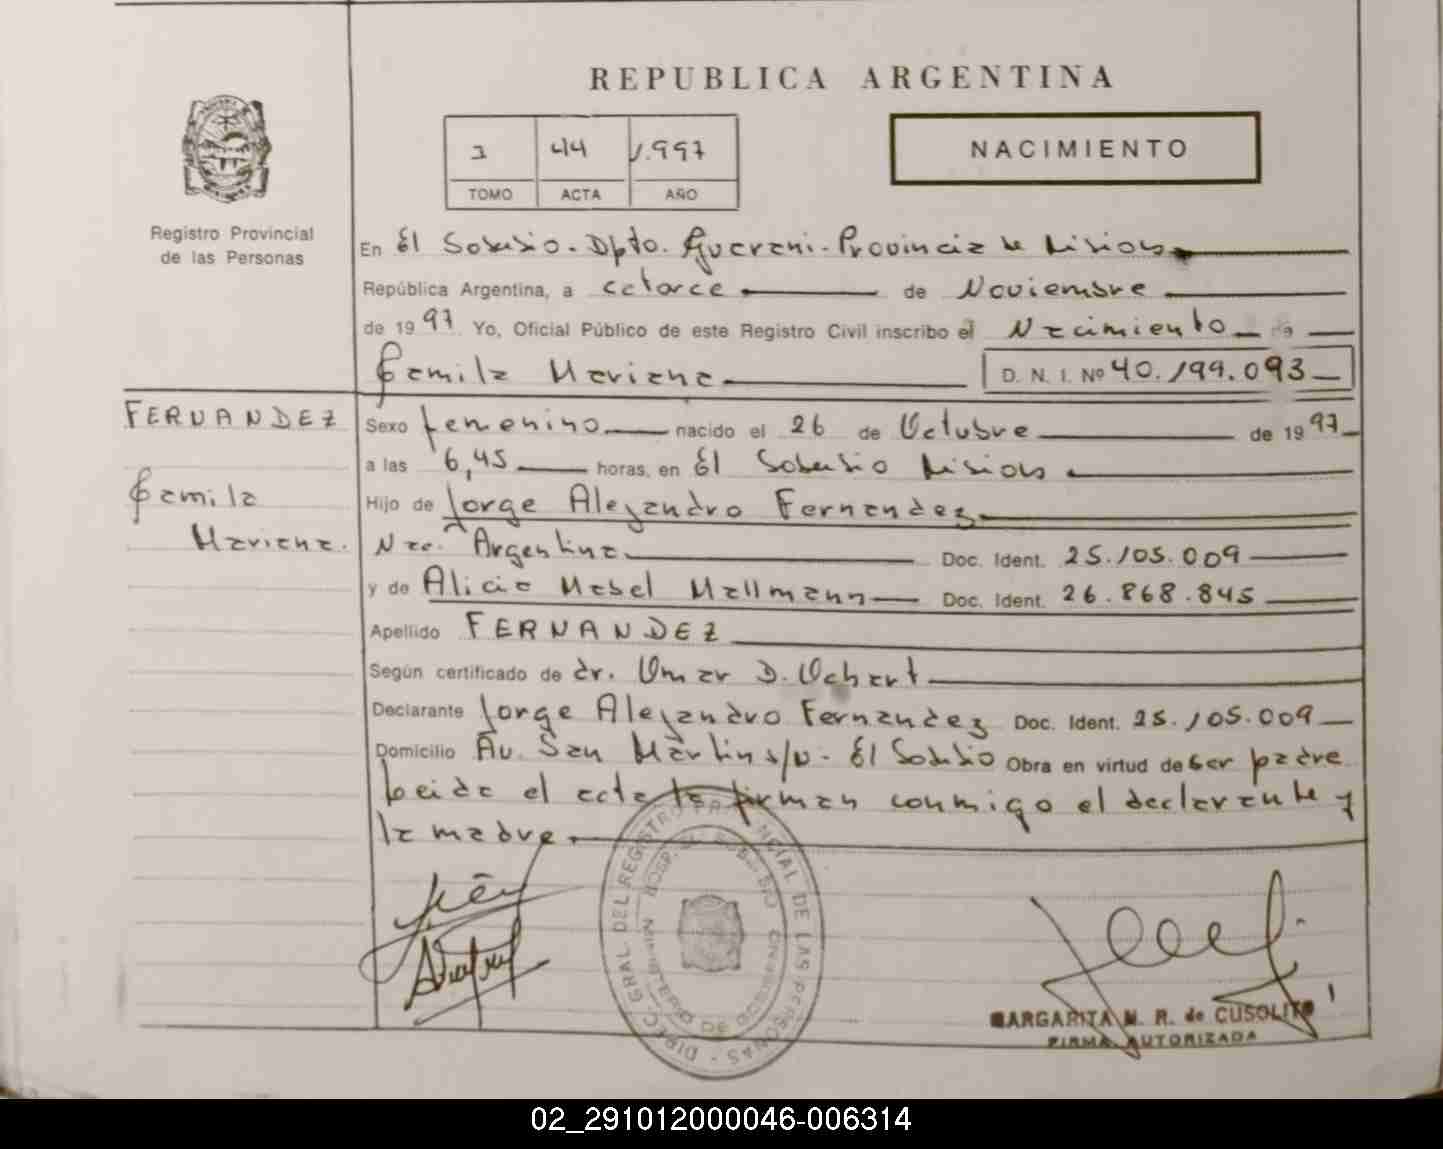 REPUBLICA ARGENTINA
1 44 1.997
TOMO ACTA AÑO
NACIMIENTO
Registro Provincial
de las Personas
En El Soberbio. Dpto. Guarani. Provincia de Misiones
República Argentina, a catorce de Noviembre
de 1997 Yo, Oficial Público de este Registro Civil inscribo el Nacimiento de
Camila Mariana D. N. I. Nº 40.199.093
FERNANDEZ
Camila
Mariana.
Sexo femenino nacido el 26 de Octubre de 1997
a las 6,45 horas, en El Soberbio Misiones
Hijo de Jorge Alejandro Fernandez
Nac. Argentina Doc. Ident. 25.105.009
y de Alicia Mabel Mallmann Doc. Ident. 26.868.845
Apellido FERNANDEZ
Según certificado de dr. Omar D.
Declarante Jorge Alejandro Fernandez Doc. Ident. 25.105.009
Domicilio Av. San Martin s/n - El Soberbio Obra en virtud de ser padre
Leida el acta la firman conmigo el declarante y
la madre.
DIREC. GRAL. DEL REGISTRO PROVINCIAL DE LAS PERSONAS
HOSP. EL SOBERBIO
MINISTERIO DE GOBIERNO
MARGARITA M. R. de CUSOLITO
FIRMA AUTORIZADA
02_291012000046-006314